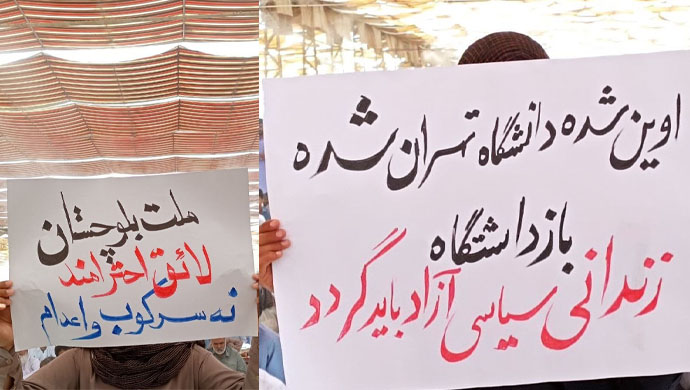 ملت بلوچستان
لائق احترامند
نه سرکوب و اعدام
اوین شده دانشگاه تهران شده
بازداشتگاه
زندانی سیاسی آزاد باید گردد